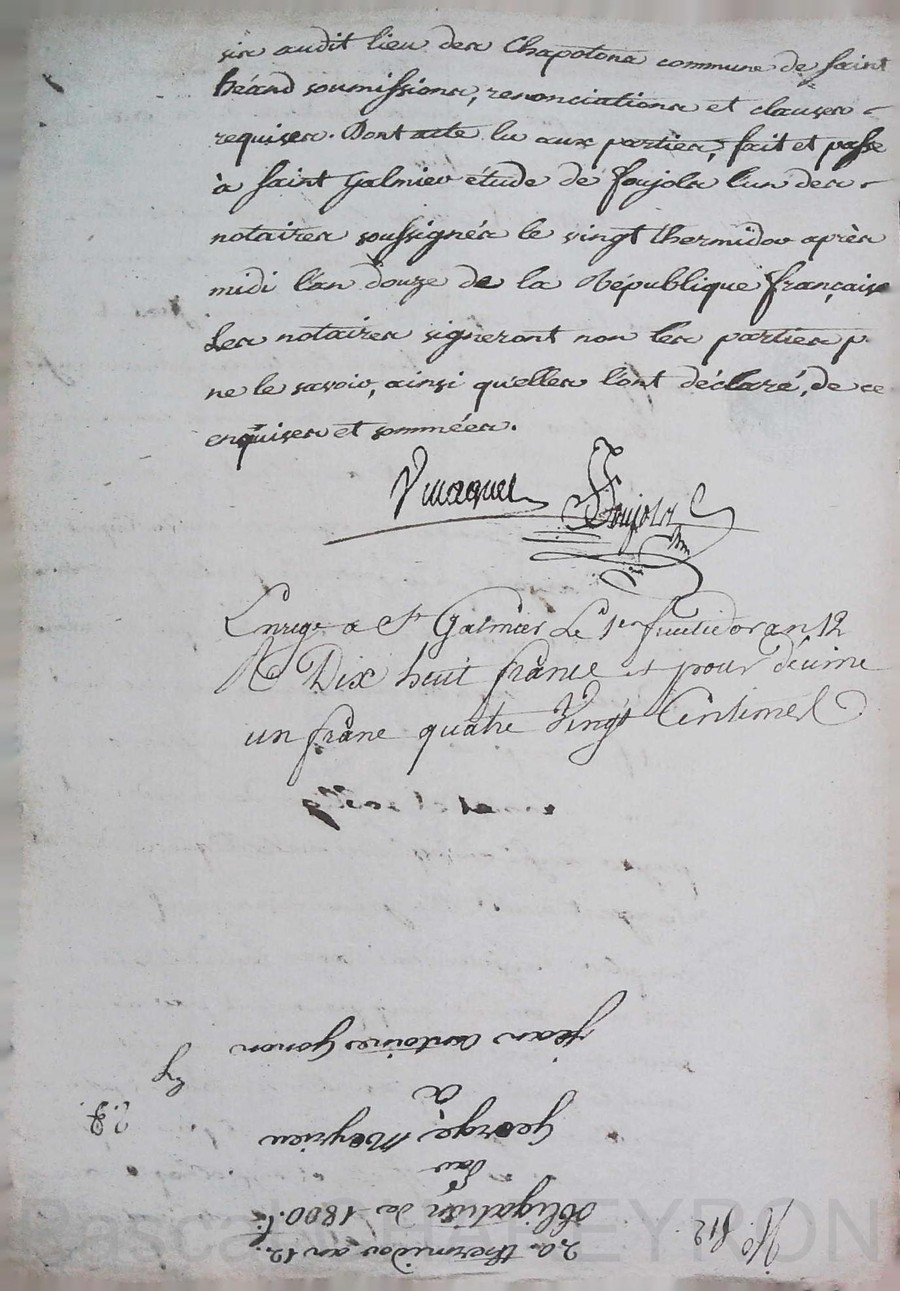 sis audit lieu des Chapotons commune de saint
héand soumissions, renonciations et clauses
requises. Dont acte lu aux parties, fait et passé
à saint Galmier étude de foujols l'un des
notaires soussignés le vingt thermidor après
midi l'an douze de la République française
Les notaires signeront non les parties p.
ne le savoir, ainsi qu'elles l'ont déclaré, de ce
enquises et sommées.
Foujols
Enregé a St Galmier Le 1er fructidor an 12
R Dix huit francs et pour décime
un franc quatre Vingt Centimes
No. 812
20. thermidor an 12.
obligation de 1800. f.
Par
George Meyrieu
à
jean antoine Gonon
Pascal CHALEYRON